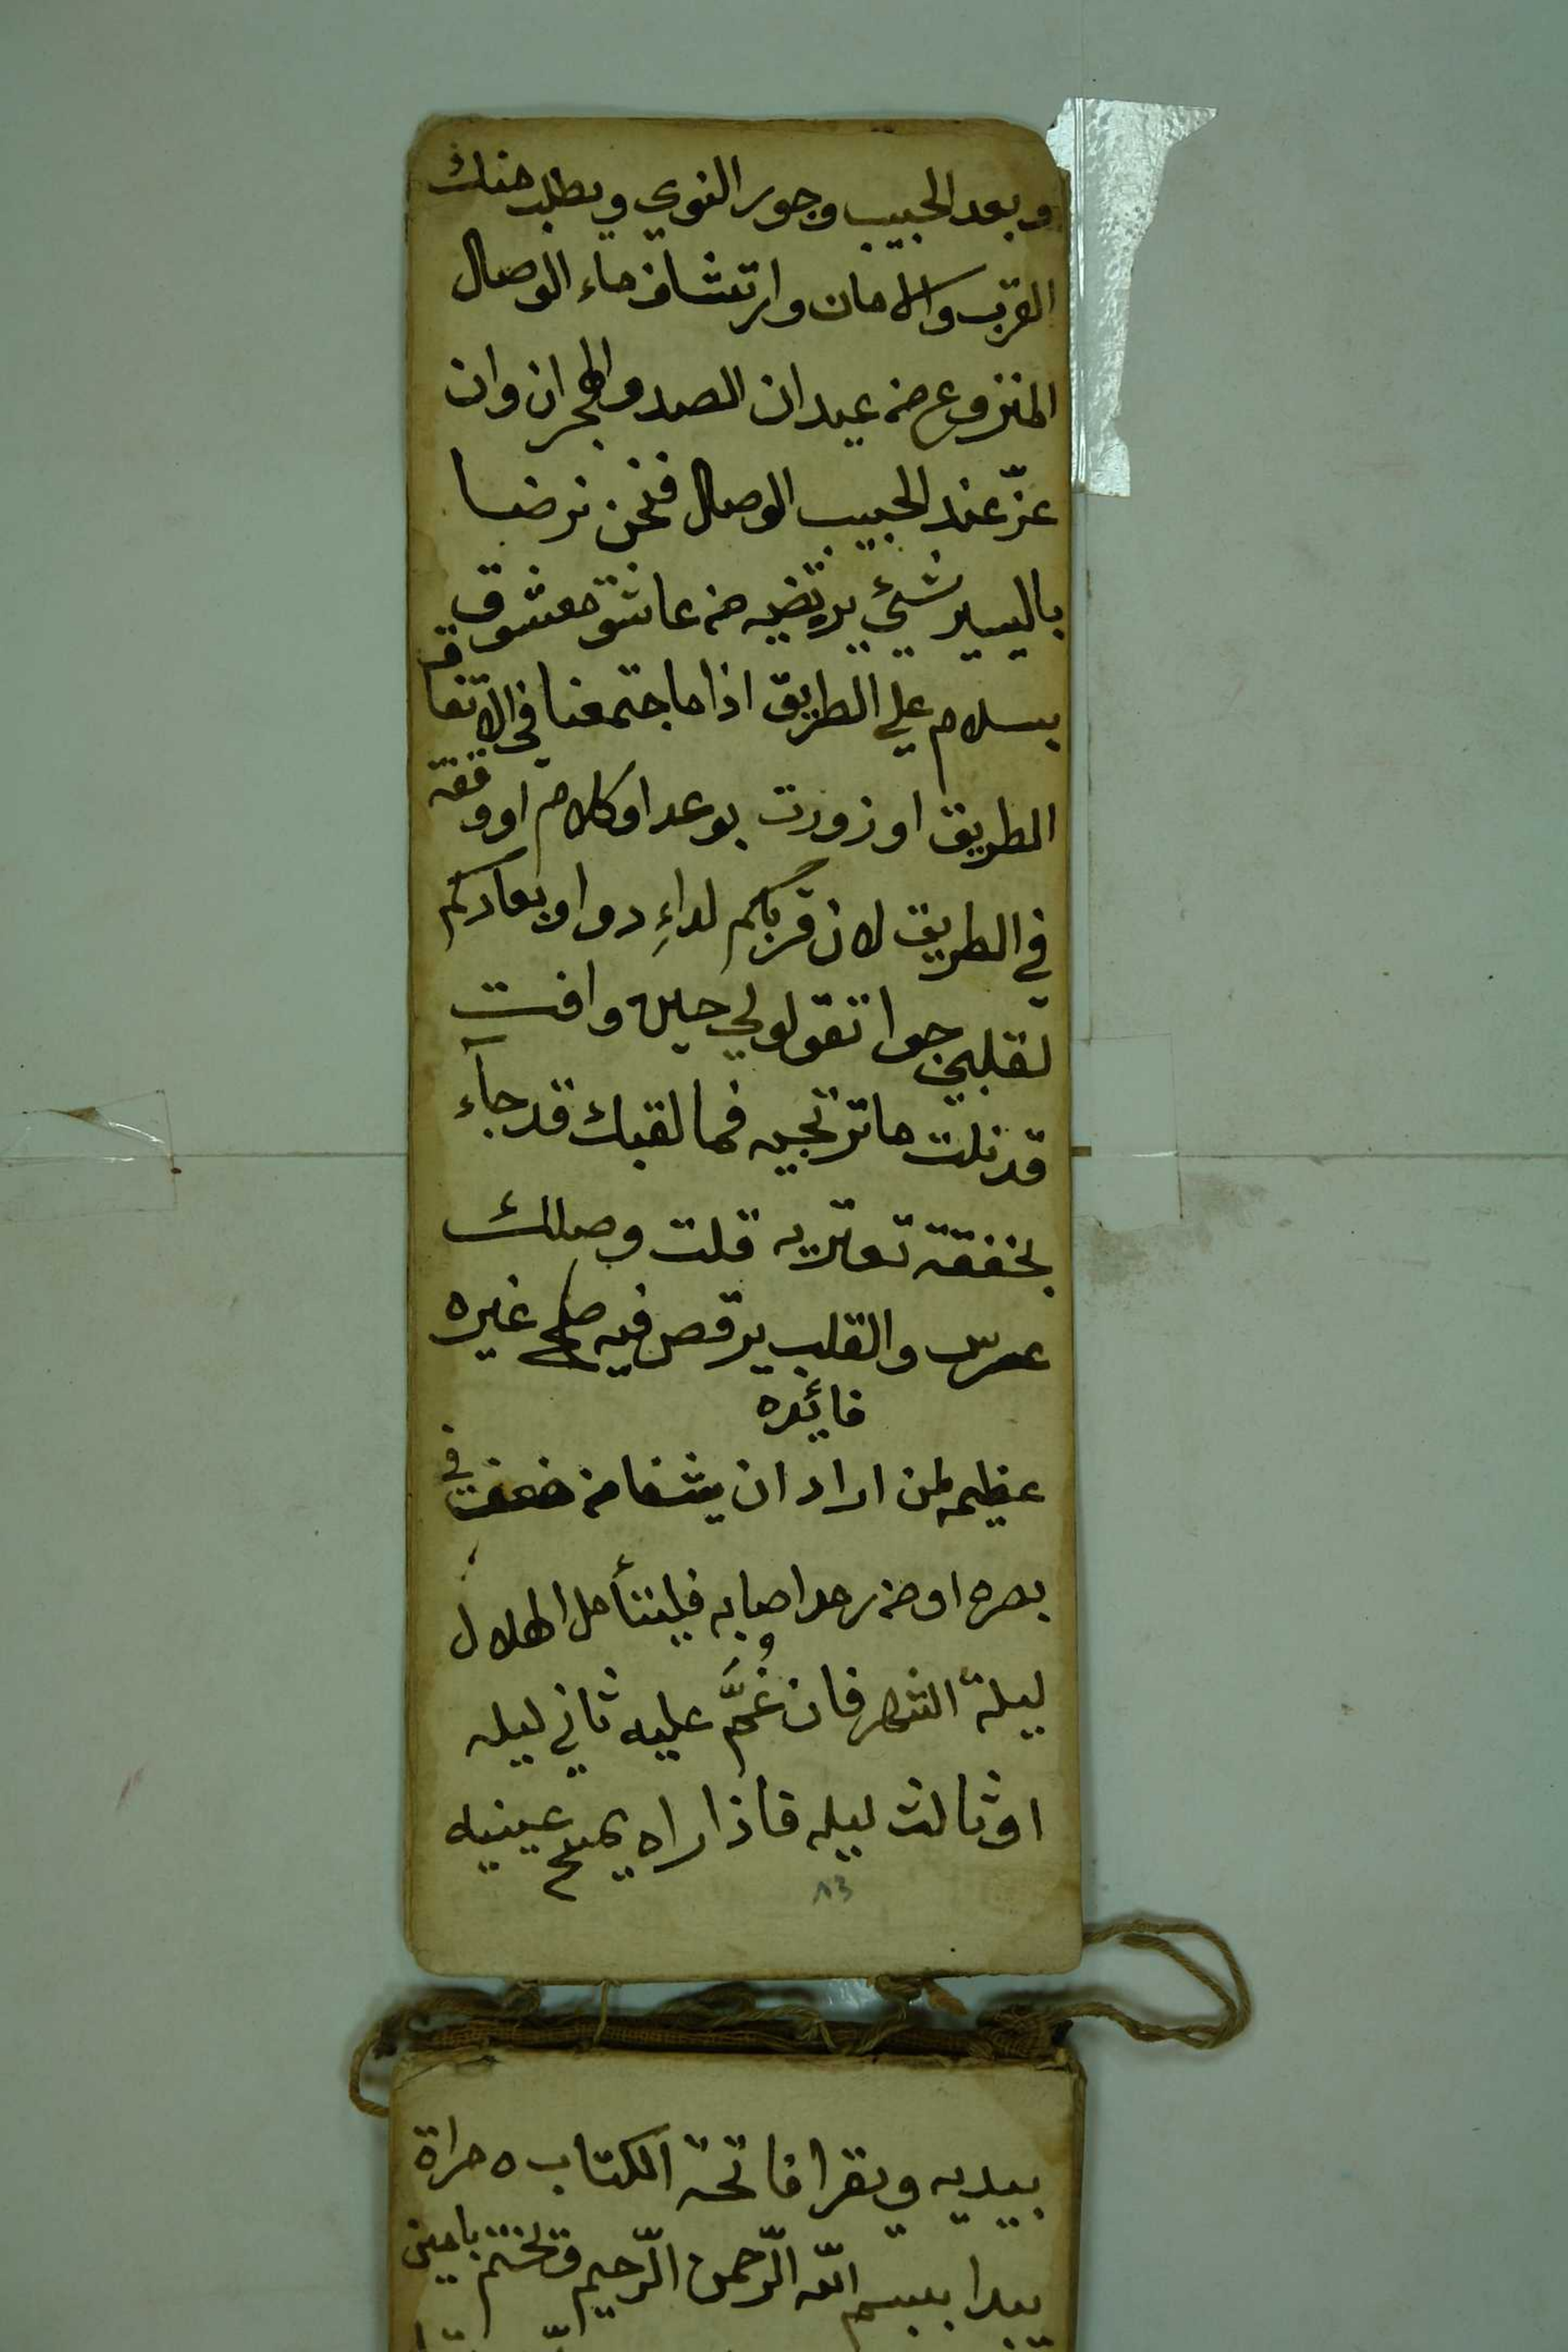 وبعد الحبيب وجور النوي ويطلب منك
القرب والامان وارتشاف ماء الوصال
المنزوع من عيدان الصد والهجران وان
عزّ عند الحبيب الوصال فنحن نرضا
باليسير شيئ يرتضيه من عاشق معشوق
بسلام علي الطريق اذا ما جتمعنا في الاتفاق
الطريق او زورت بوعد او كلام او وقفة
في الطريق لان قربكم لداءِ دوا وبعادكم
لقلبي جوا تقولولي حين وافت
قد نلت ما ترتجيه فما لقبك قد جآء
بخفقة تعتريه قلت وصلك
عرس والقلب يرقص فيه صح غيره
فائده
عظيمه لمن اراد ان يشفا من ضعف في
بصره او من رمد اصابه فليتأمل الهلال
ليلة الشهر فان غُمَّ عليه ثاني ليله
او ثالث ليله فاذا راه يمسح عينيه
٨٣
بيديه ويقرا فاتحة الكتاب ٥ مراة
يبدا ببسم الله الرّحمن الرّحيم وتختم بامين